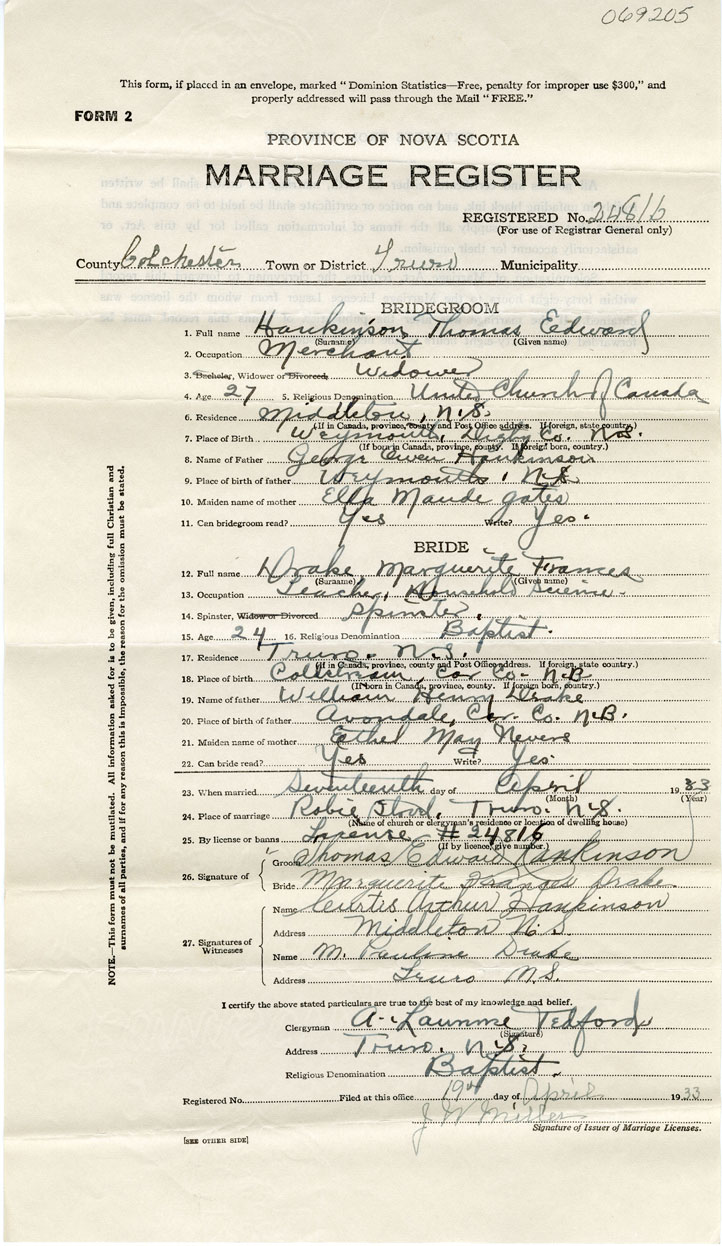 069205
This form, if placed in an envelope, marked "Dominion Statistics—Free, penalty for improper use $300," and
properly addressed will pass through the Mail "FREE."
FORM 2
PROVINCE OF NOVA SCOTIA
MARRIAGE REGISTER
REGISTERED No. 24816
(For use of Registrar General only)
County Colchester Town or District Truro Municipality
BRIDEGROOM
1. Full name Hankinson, Thomas Edward
(Surname) (Given name)
2. Occupation Merchant
3. Bachelor, Widower or Divorced Widower
4. Age 27 5. Religious Denomination United Church of Canada
6. Residence Middleton, N.S.
(If in Canada, province, county and Post Office address. If foreign, state country.)
7. Place of Birth Weymouth, Digby Co. N.S.
(If born in Canada, province, county. If foreign born, country.)
8. Name of Father George Owen Hankinson
9. Place of birth of father Weymouth, N.S.
10. Maiden name of mother Ella Maude Gates
11. Can bridegroom read? Yes Write? Yes.
BRIDE
12. Full name Drake, Marguerite Frances
(Surname) (Given name)
13. Occupation Teacher, Household Science.
14. Spinster, Widow or Divorced Spinster.
15. Age 24 16. Religious Denomination Baptist.
17. Residence Truro. N.S.
(If in Canada, province, county and Post Office address. If foreign, state country.)
18. Place of birth Coldstream, Car Co. N.B
(If born in Canada, province, county. If foreign born, country.)
19. Name of father William Henry Drake
20. Place of birth of father Avondale, Car. Co. N.B.
21. Maiden name of mother Ethel May Nevers
22. Can bride read? Yes Write? Yes.
23. When married Seventeenth day of April 1933
(Month) (Year)
24. Place of marriage Robie Street, Truro. N.S.
(Name of church or clergyman's residence or location of dwelling house)
25. By license or banns License #24816
(If by licence, give number.)
26. Signature of
Groom Thomas Edward Hankinson
Bride Marguerite Frances Drake
27. Signatures of Witnesses
Name Curtis Arthur Hankinson
Address Middleton N.S.
Name M. Pauline Drake
Address Truro N.S.
I certify the above stated particulars are true to the best of my knowledge and belief.
Clergyman A. Telford
(Signature)
Address Truro. N.S.
Religious Denomination Baptist.
Registered No. Filed at this office 19th day of April 1933
J W Miller
Signature of Issuer of Marriage Licenses.
[SEE OTHER SIDE]
NOTE.—This form must not be mutilated. All information asked for is to be given, including full Christian and
surnames of all parties, and if for any reason this is impossible, the reason for the omission must be stated.